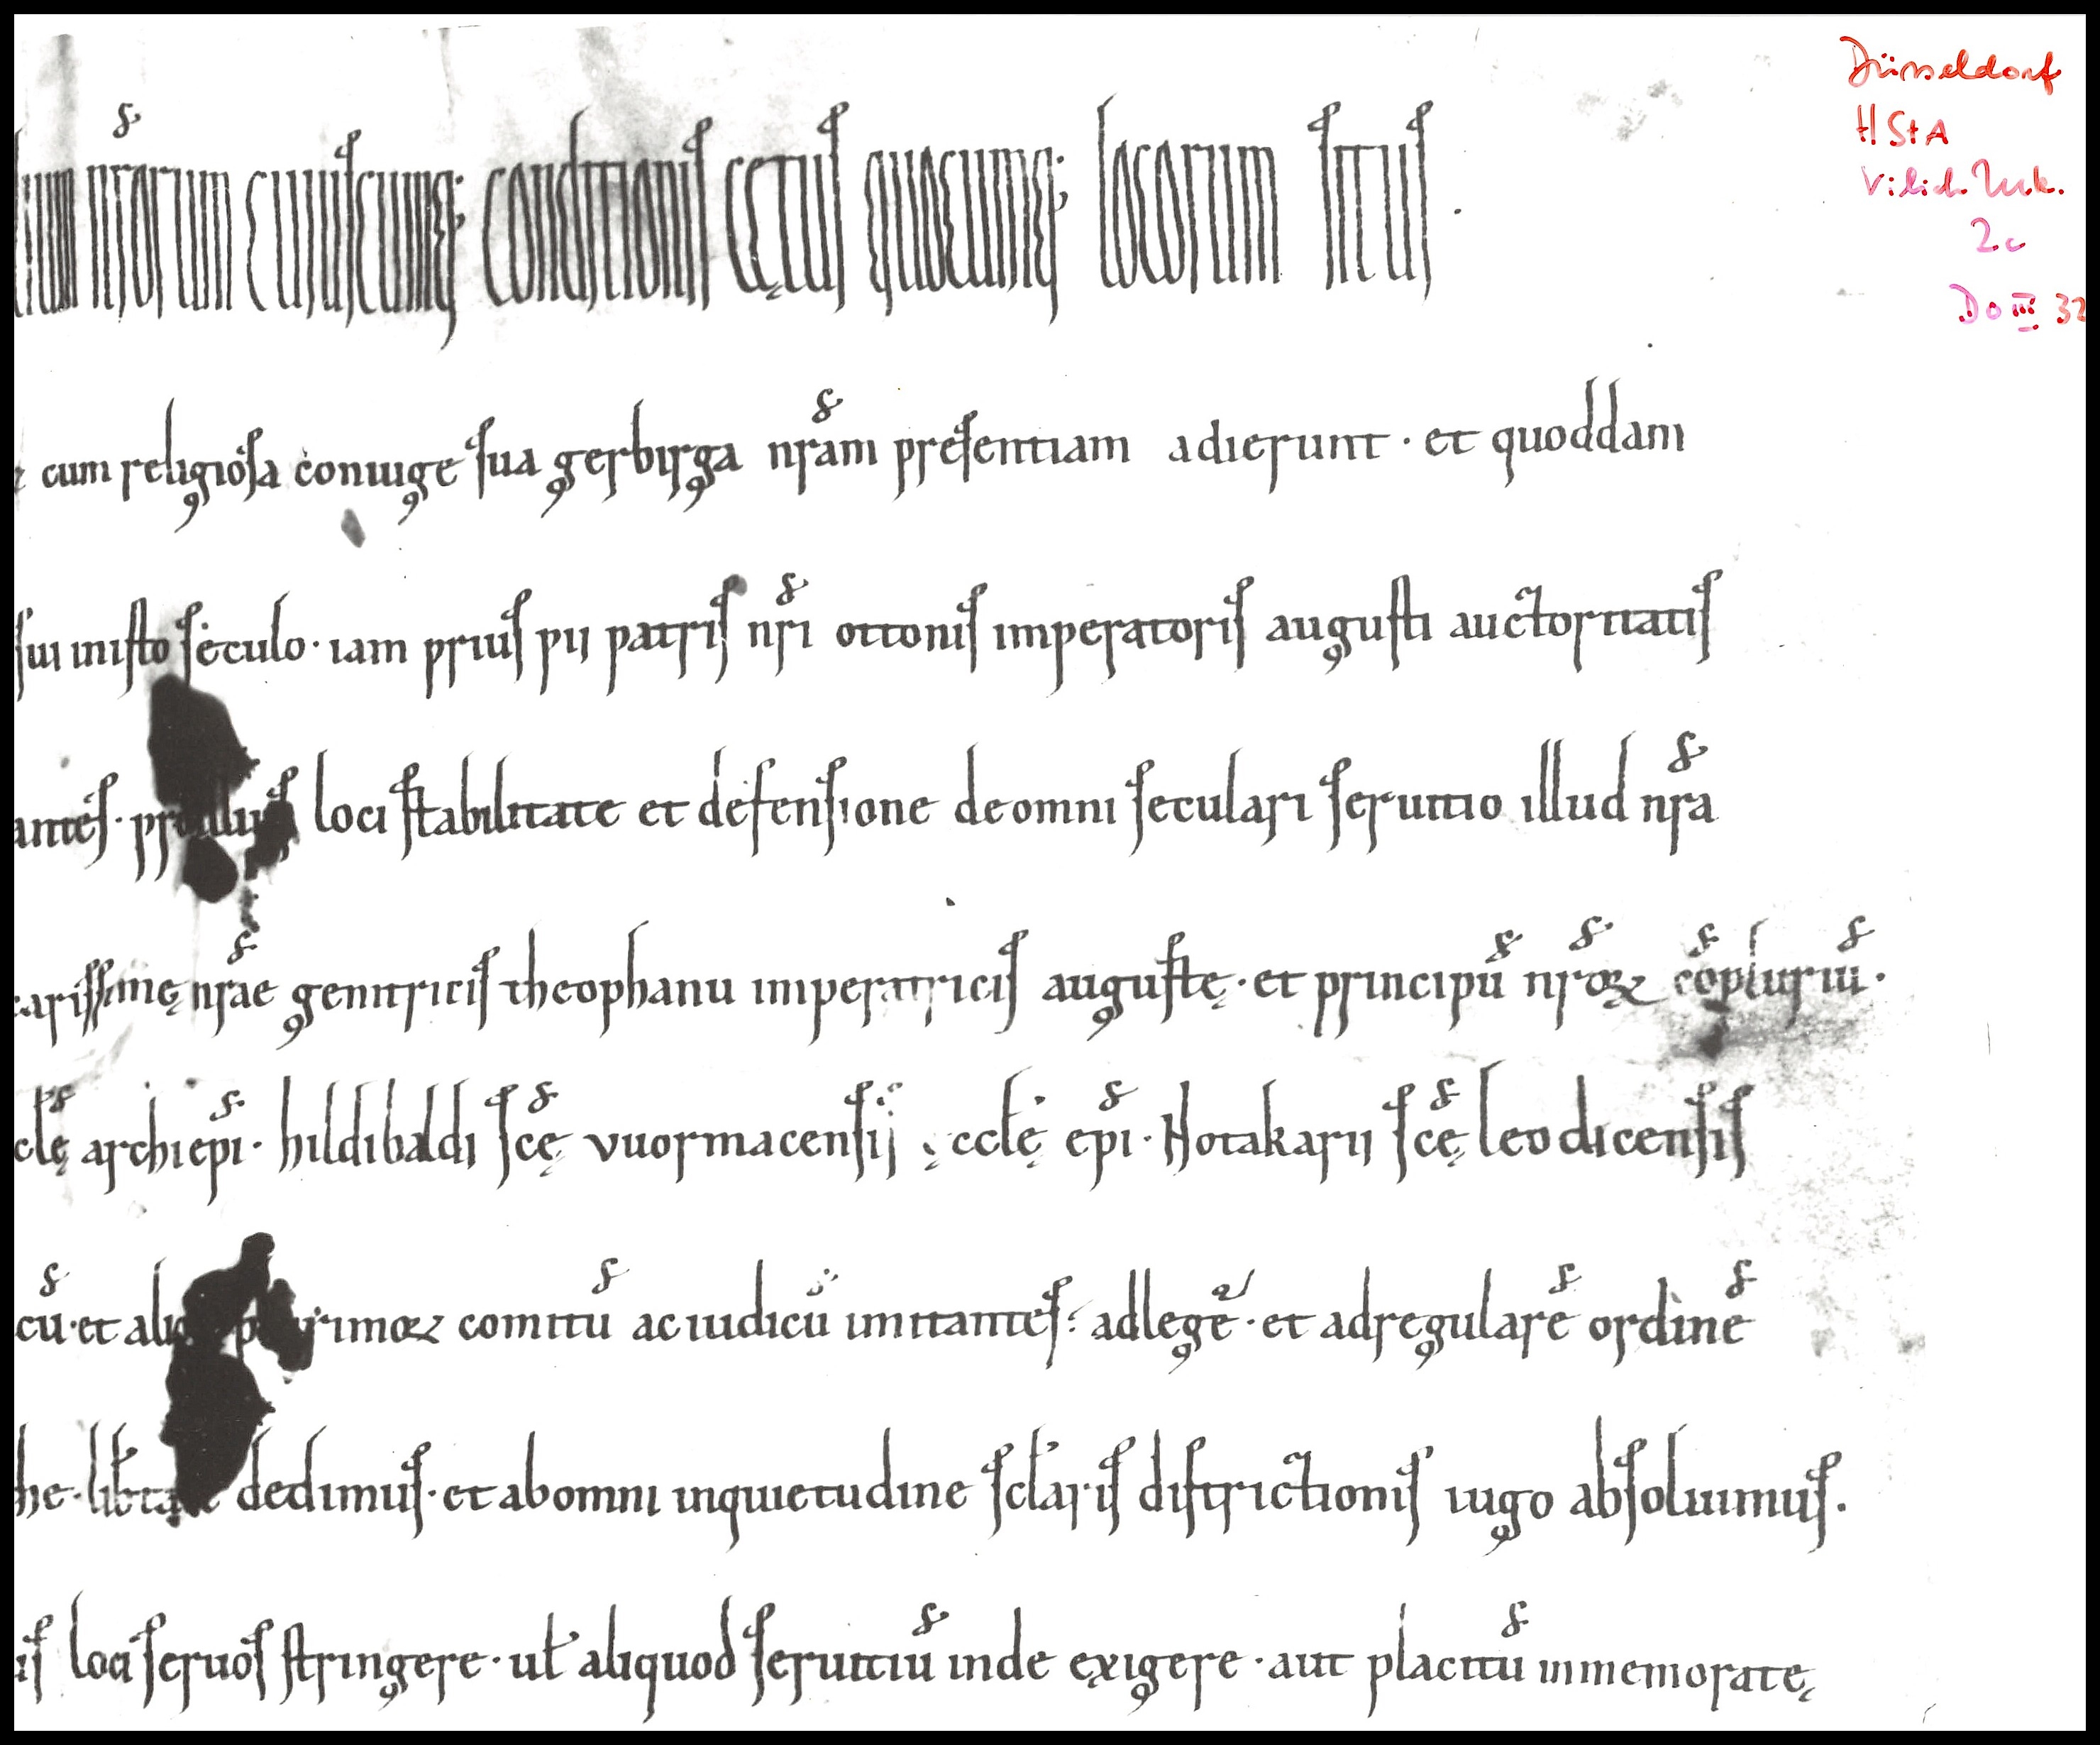 Düsseldorf
HStA
Vilich Urk.
2c
DO III 32
lium nr̄orum cuiuscumq; conditionis cętus quocumq; locorum situs .
cum religiosa coniuge sua gerbirga nr̄am presentiam adierunt · et quoddam
sui inisto seculo · iam prius pii patris nr̄i ottonis imperatoris augusti auctoritatis
antes · loci stabilitate et defensione deomni seculari seruitio illud nr̄a
carissimę nr̄ae genitricis theophanu imperatricis augustę · et principū nr̄oꝝ cōpluriū ·
clę archiep̄i · hildibaldi sc̄ę vuormacensij ęcclę ep̄i · Notakarii sc̄ę leodicensis
cū · et comitū aciudicū imitantes : adlegē · et adregularē ordinē
he · dedimus · et abomni inquietudine sclaris districtionis iugo absoluimus .
is loci seruos stringere · ul̄ aliquod seruitiū inde exigere · aut placitū inmemoratę